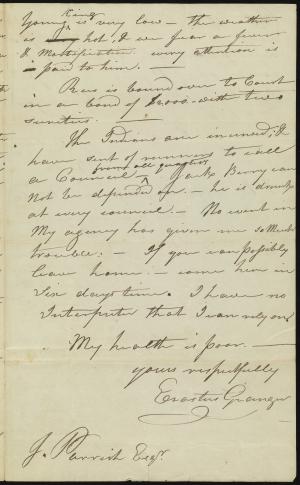 King
Young is very low — the weather
is hot, & we fear a fever
& Mortification every attention is
paid to him. —
Rees is bound over to Court
in a bond of $2000 with two
sureties. —
The Indians are incensed, I
have sent off runners to call
from all quarters
a Council — Jack Berry can
not be depended on — he is drunk
at every council. — No event in
my agency has given me so much
trouble. — If you can possibly
leave home — come him in
six days time. I have no
Interpreter that I can rely on
My health is poor. —
yours respectfully
Erastus Granger
J. Parrish Esqr.